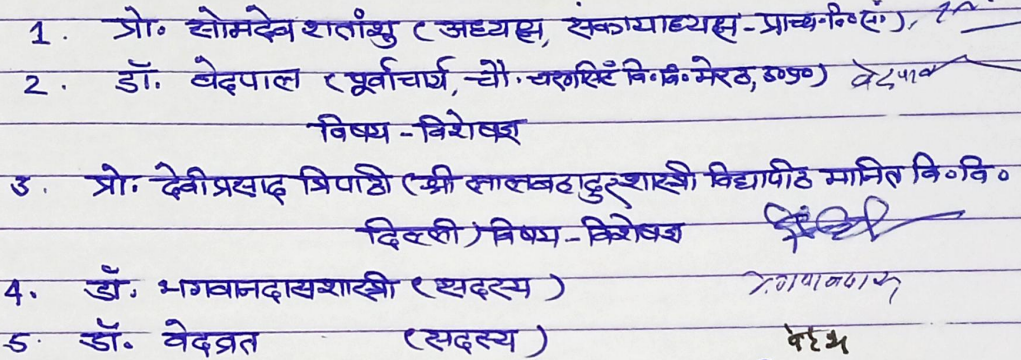 1. प्रो. सोमदेव शतांशु (अध्यक्ष, संकायाध्यक्ष-प्राच्य.वि०सं०),
2. डॉ. वेदपाल (पूर्वाचार्य, चौ. चरणसिंह वि.वि. मेरठ, उ०प्र०) वेदपाल
विषय - विशेषज्ञ
3. प्रो. देवीप्रसाद त्रिपाठी (श्री लालबहादुरशास्त्री विद्यापीठ मानित वि०वि०
दिल्ली) विषय - विशेषज्ञ
4. डॉ. भगवानदासशास्त्री (सदस्य) भगवानदास
5. डॉ. वेदव्रत (सदस्य)